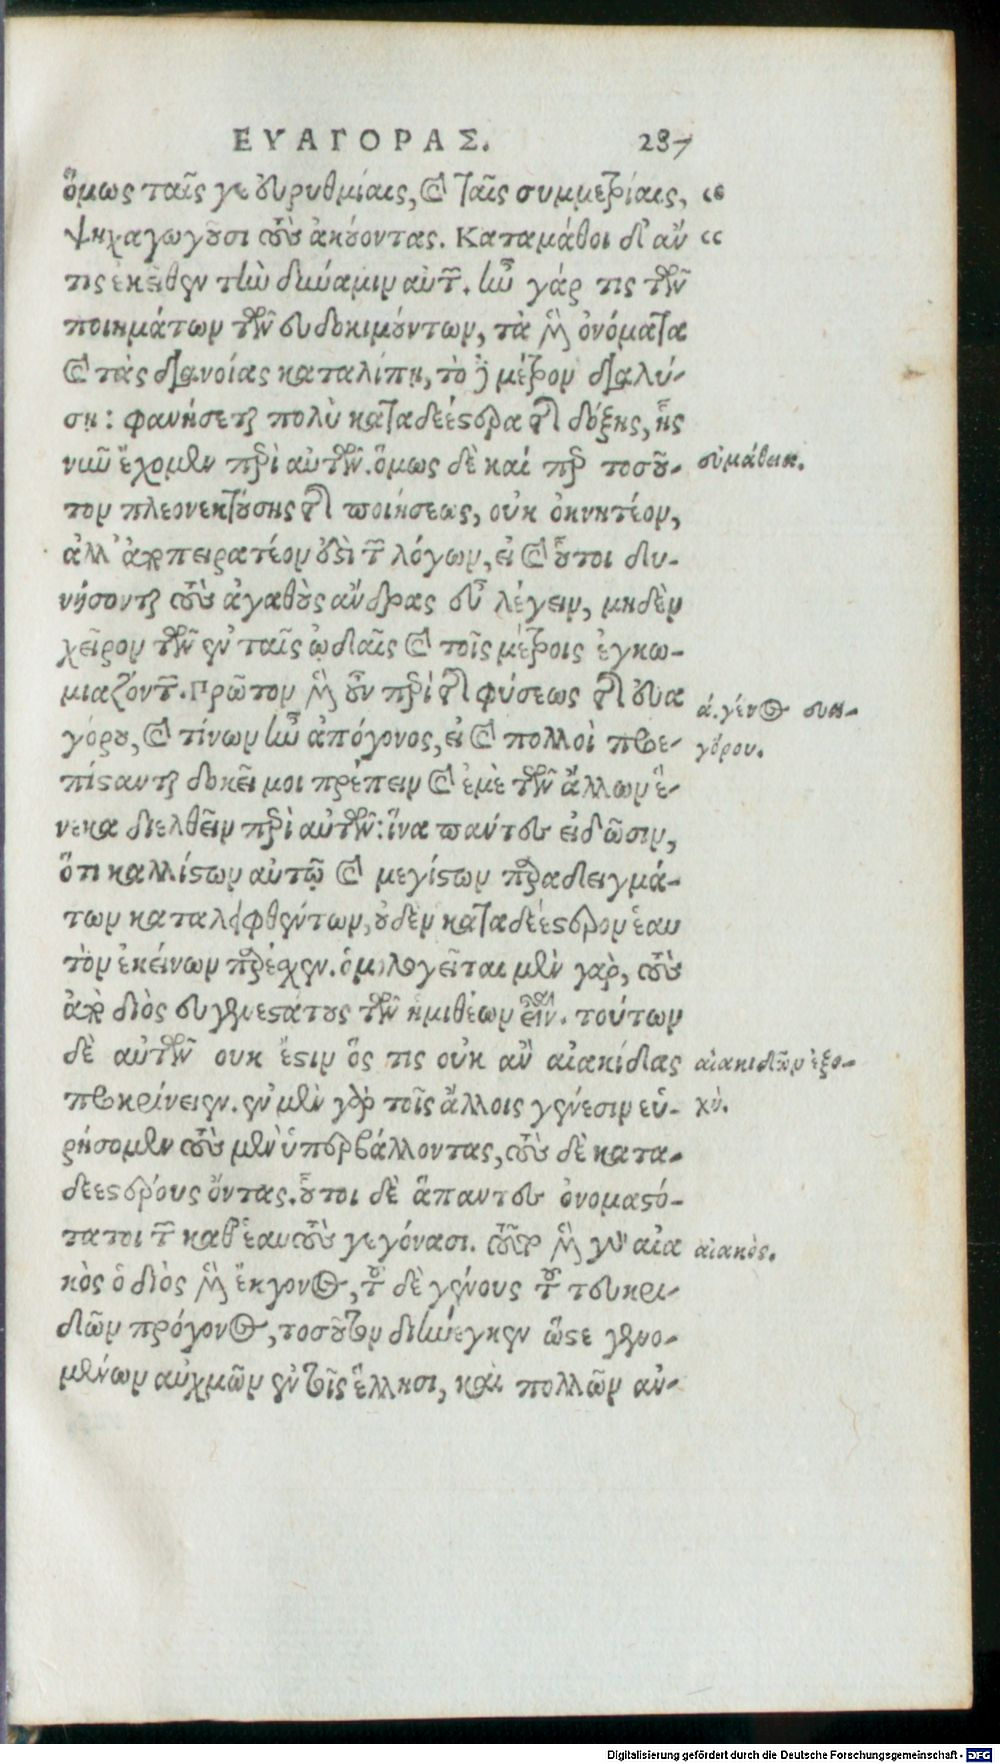 ΕΥΑΓΟΡΑΣ. 287
ὅμως ταῖς γε εὐρυθμίαις, καὶ ταῖς συμμετρίαις,
ψυχαγωγοῦσι τοὺς ἀκούοντας. Καταμάθοι δ' ἄν
τις ἐκεῖθεν τὴν δύναμιν αὐτῶν. ἢν γάρ τις τῶν
ποιημάτων τῶν εὐδοκιμούντων, τὰ μὲν ὀνόματα
καὶ τὰς διανοίας καταλίπῃ, τὸ δὲ μέτρον διαλύ-
σῃ: φανήσεται πολὺ καταδεέστερα τῆς δόξης, ἧς
νῦν ἔχομεν περὶ αὐτῶν. ὅμως δὲ καίπερ τοσοῦ-
τον πλεονεκτούσης τῆς ποιήσεως, οὐκ ὀκνητέον,
ἀλλ' ἀποπειρατέον ἐστὶ τῶν λόγων, εἰ καὶ οὗτοι δυ-
νήσονται τοὺς ἀγαθοὺς ἄνδρας εὖ λέγειν, μηδὲν
χεῖρον τῶν ἐν ταῖς ᾠδαῖς καὶ τοῖς μέτροις ἐγκω-
μιαζόντων. Πρῶτον μὲν οὖν περὶ τῆς φύσεως τῆς εὐα
γόρου, καὶ τίνων ἦν ἀπόγονος, εἰ καὶ πολλοὶ προε-
πίστανται δοκεῖ μοι πρέπειν καὶ ἐμὲ τῶν ἄλλων ἕ-
νεκα διελθεῖν περὶ αὐτῶν: ἵνα πάντες εἰδῶσιν,
ὅτι καλλίστων αὐτῷ καὶ μεγίστων παραδειγμά-
των καταλειφθέντων, οὐδὲν καταδεέστερον ἑαυ
τὸν ἐκείνων παρέχεν. ὁμολογεῖται μὲν γὰρ, τοὺς
ἀπὸ διὸς εὐγενεστάτους τῶν ἡμιθέων εἶναι. τούτων
δὲ αὐτῶν ουκ ἔστιν ὅς τις οὐκ ἂν αἰακίδας
προκρίνειεν. ἐν μὲν γὰρ τοῖς ἄλλοις γένεσιν εὑ-
ρήσομεν τοὺς μὲν ὑπερβάλλοντας, τοὺς δὲ κατα-
δεεστέρους ὄντας. οὗτοι δὲ ἅπαντες ὀνομαστό-
τατοι τῶν καθ' ἑαυτοὺς γεγόνασι. τοῦτο μὲν γὰρ αἰα
κὸς ὁ διὸς μὲν ἔκγονος, τοῦ δὲ γένους τοῦ τευκρι-
δῶν πρόγονος, τοσοῦτον διήνεγκεν ὥστε γενο-
μένων αὐχμῶν ἐν τοῖς ἕλλησι, καὶ πολλῶν ἀν-
συμάθεια.
ά. γένος ευα-
γόρου.
αἰακιδῶν ἐξο-
χή.
αἰακὸς.
Digitalisierung gefördert durch die Deutsche Forschungsgemeinschaft - DFG